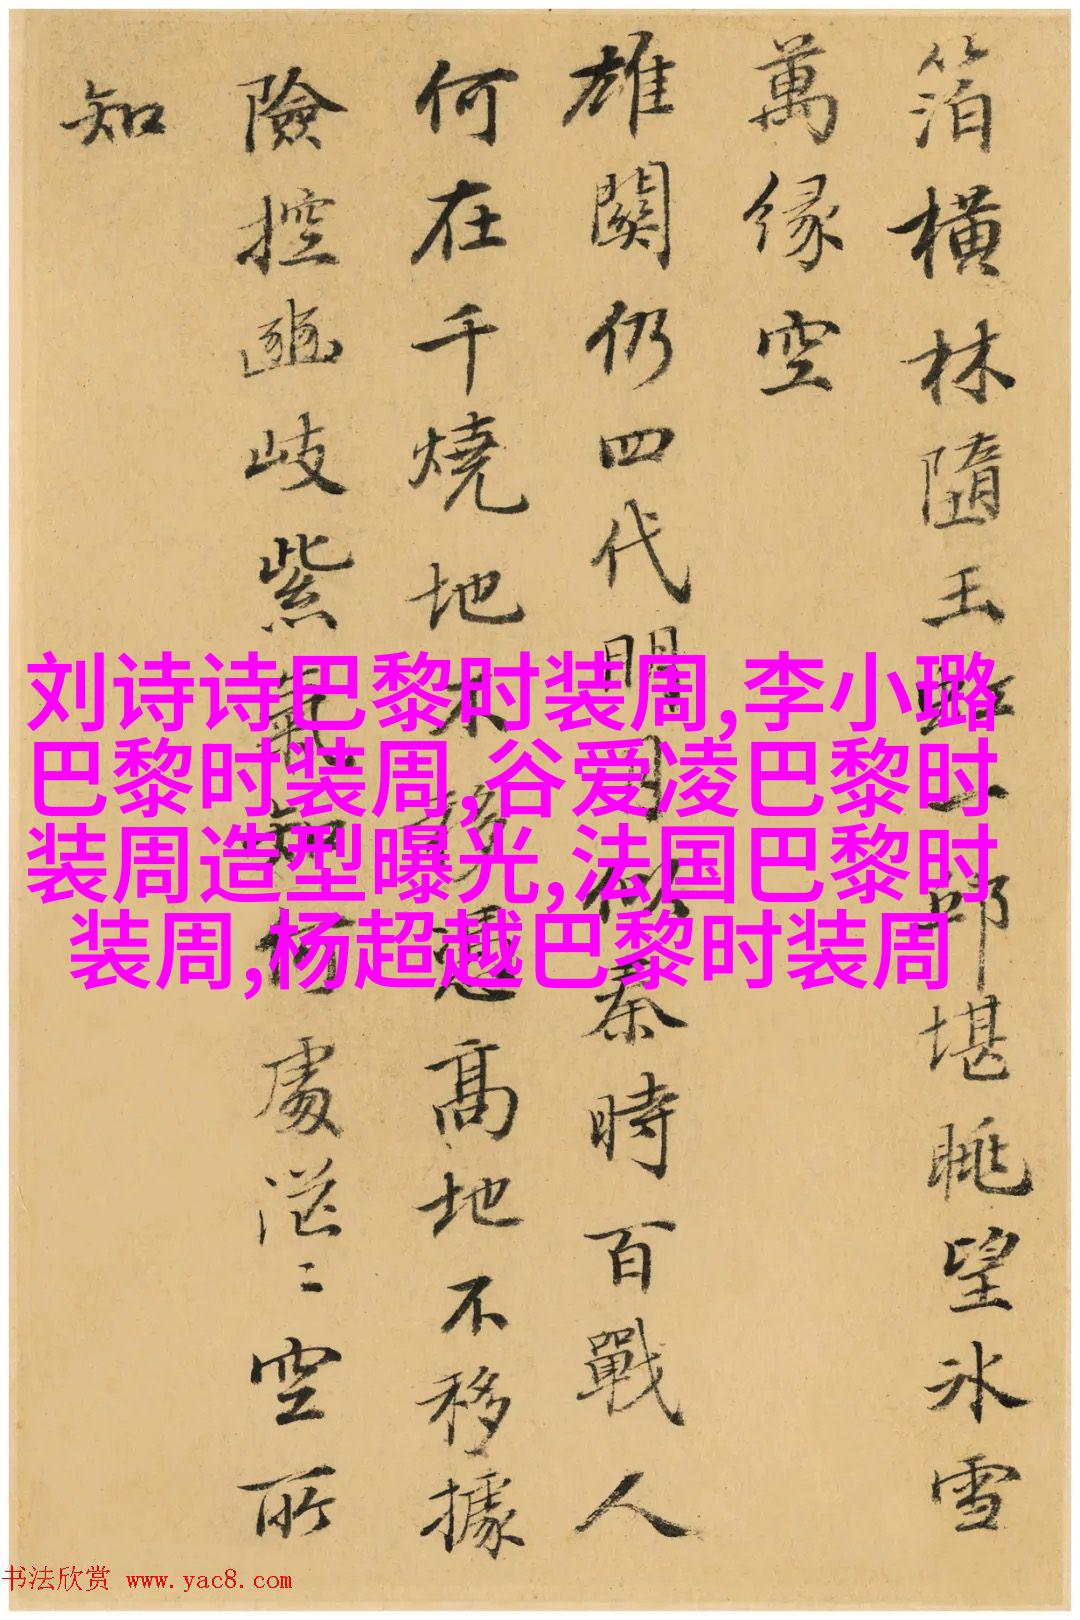 箔橫林隨玉虹堪眺望氷雪
萬緣空
雄關仍四代明月似秦時百戰人
何在千燒地移憑高地不移據
險控豳岐紫氣知何處茫〻空所
知
刘诗诗巴黎时装周,李小璐
巴黎时装周,谷爱凌巴黎时
装周造型曝光,法国巴黎时
装周,杨超越巴黎时装周
书法欣赏 www.yac8.com